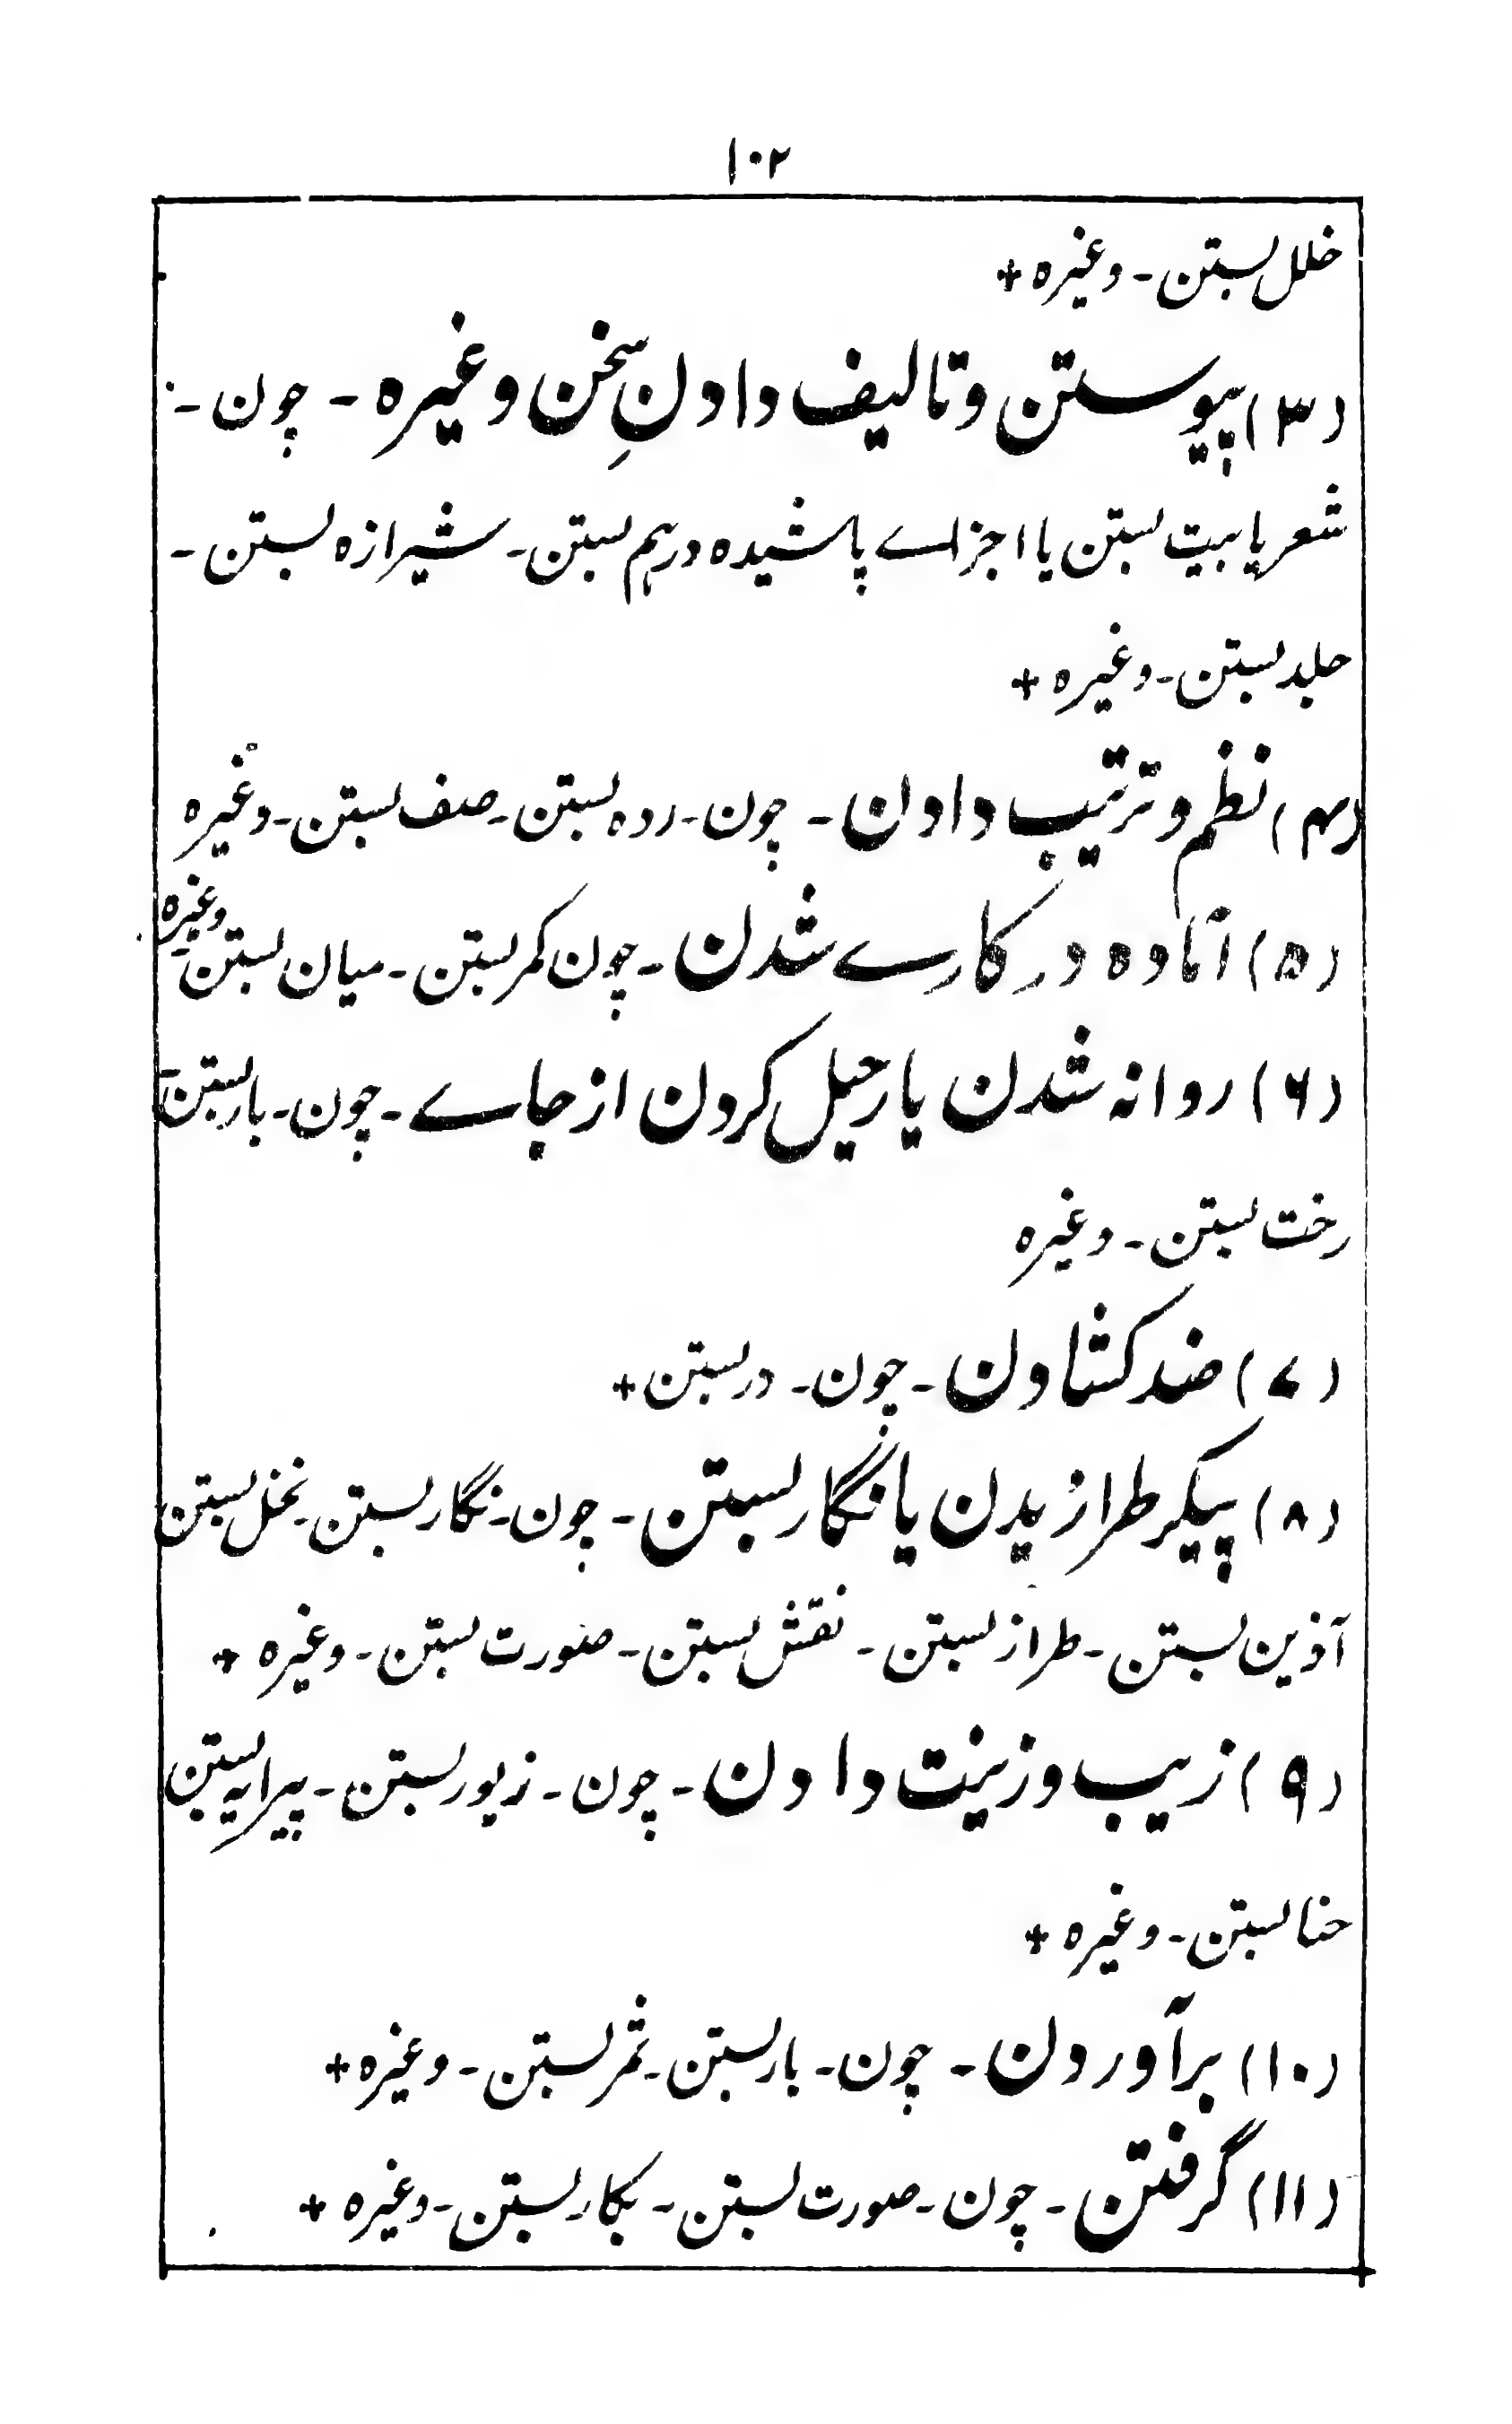 ۱۰۲
خلل بستن۔ وغیره +
(۳) پیوستن و تالیف دادنِ سخن وغیره۔ چون۔
شعر یا بیت بستن یا اجزاے پاشیده درهم بستن۔ شیرازه بستن۔
جلد بستن۔ وغیره +
(۴) نظم و ترتیب دادن۔ چون۔ رده بستن۔ صف بستن۔ وغیره
(۵) آماده در کارے شدن۔ چون کمر بستن۔ میان بستن۔ وغیره
(۶) روانه شدن یا رحیل کردن از جاے۔ چون۔ بار بستن۔
رخت بستن۔ وغیره
(۷) ضد کشادن۔ چون۔ در بستن +
(۸) پیکر طرازیدن یا نگار بستن۔ چون۔ نگار بستن۔ نخل بستن
آذین بستن۔ طراز بستن۔ نقش بستن۔ صورت بستن۔ وغیره +
(۹) زیب و زینت دادن۔ چون۔ زیور بستن۔ پیرایه بستن
حنا بستن۔ وغیره +
(۱۰) برآوردن۔ چون۔ بار بستن۔ ثمر بستن۔ وغیره +
(۱۱) گرفتن۔ چون۔ صورت بستن۔ بکار بستن۔ وغیره +